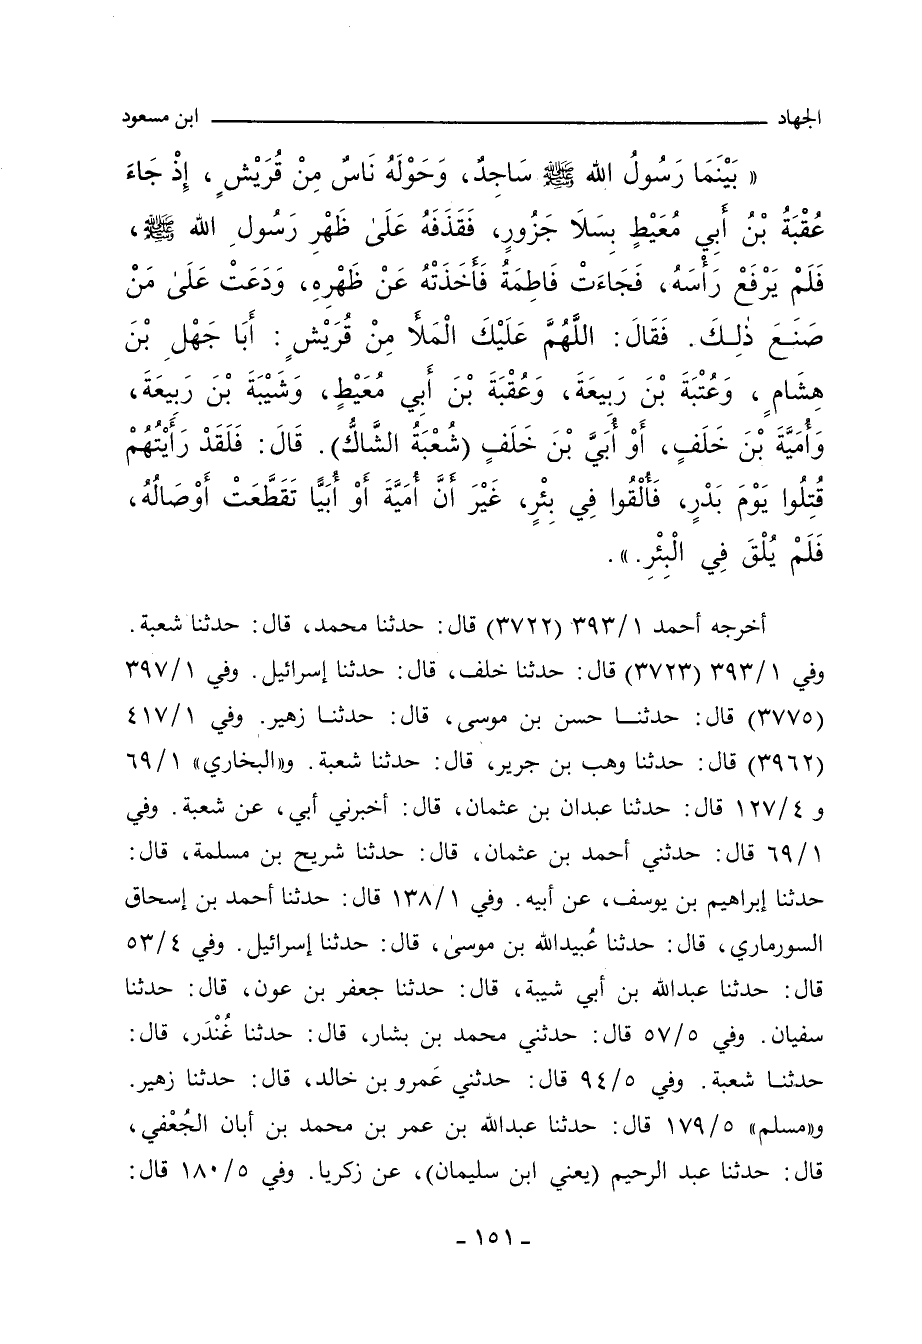 الجهاد ـــــــــــــــــــــــــــــــــــــــــــــــــــ ابن مسعود
« بَيْنَمَا رَسُولُ الله ﷺ سَاجِدٌ، وَحَوْلَهُ نَاسٌ مِنْ قُرَيْشٍ ، إِذْ جَاءَ
عُقْبَةُ بْنُ أَبِي مُعَيْطٍ بِسَلَا جَزُورٍ، فَقَذَفَهُ عَلَىٰ ظَهْرِ رَسُولِ الله ﷺ،
فَلَمْ يَرْفَعْ رَأْسَهُ، فَجَاءَتْ فَاطِمَةُ فَأَخَذَتْهُ عَنْ ظَهْرِهِ، وَدَعَتْ عَلَىٰ مَنْ
صَنَعَ ذٰلِكَ. فَقَالَ: اللَّهُمَّ عَلَيْكَ الْمَلَأَ مِنْ قُرَيْشٍ : أَبَا جَهْلِ بْنَ
هِشَامٍ ، وَعُتْبَةَ بْنَ رَبِيعَةَ، وَعُقْبَةَ بْنَ أَبِي مُعَيْطٍ، وَشَيْبَةَ بْنَ رَبِيعَةَ،
وَأُمَيَّةَ بْنَ خَلَفٍ، أَوْ أُبَيَّ بْنَ خَلَفٍ (شُعْبَةُ الشَّاكُّ). قَالَ: فَلَقَدْ رَأَيْتُهُمْ
قُتِلُوا يَوْمَ بَدْرٍ، فَأُلْقُوا فِي بِئْرٍ، غَيْرَ أَنَّ أُمَيَّةَ أَوْ أُبَيًّا تَقَطَّعَتْ أَوْصَالُهُ،
فَلَمْ يُلْقَ فِي الْبِئْرِ.».
أخرجه أحمد ٣٩٣/١ (٣٧٢٢) قال: حدثنا محمد، قال: حدثنا شعبة.
وفي ٣٩٣/١ (٣٧٢٣) قال: حدثنا خلف، قال: حدثنا إسرائيل. وفي ٣٩٧/١
(٣٧٧٥) قال: حدثنا حسن بن موسى، قال: حدثنا زهير. وفي ٤١٧/١
(٣٩٦٢) قال: حدثنا وهب بن جرير، قال: حدثنا شعبة. و«البخاري» ٦٩/١
و ١٢٧/٤ قال: حدثنا عبدان بن عثمان، قال: أخبرني أبي، عن شعبة. وفي
٦٩/١ قال: حدثني أحمد بن عثمان، قال: حدثنا شريح بن مسلمة، قال:
حدثنا إبراهيم بن يوسف، عن أبيه. وفي ١٣٨/١ قال: حدثنا أحمد بن إسحاق
السورماري، قال: حدثنا عُبيدالله بن موسىٰ، قال: حدثنا إسرائيل. وفي ٥٣/٤
قال: حدثنا عبدالله بن أبي شيبة، قال: حدثنا جعفر بن عون، قال: حدثنا
سفيان. وفي ٥٧/٥ قال: حدثني محمد بن بشار، قال: حدثنا غُنْدَر، قال:
حدثنا شعبة. وفي ٩٤/٥ قال: حدثني عَمرو بن خالد، قال: حدثنا زهير.
و«مسلم» ١٧٩/٥ قال: حدثنا عبدالله بن عمر بن محمد بن أبان الجُعْفي،
قال: حدثنا عبد الرحيم (يعني ابن سليمان)، عن زكريا. وفي ١٨٠/٥ قال:
ـ ١٥١ ـ